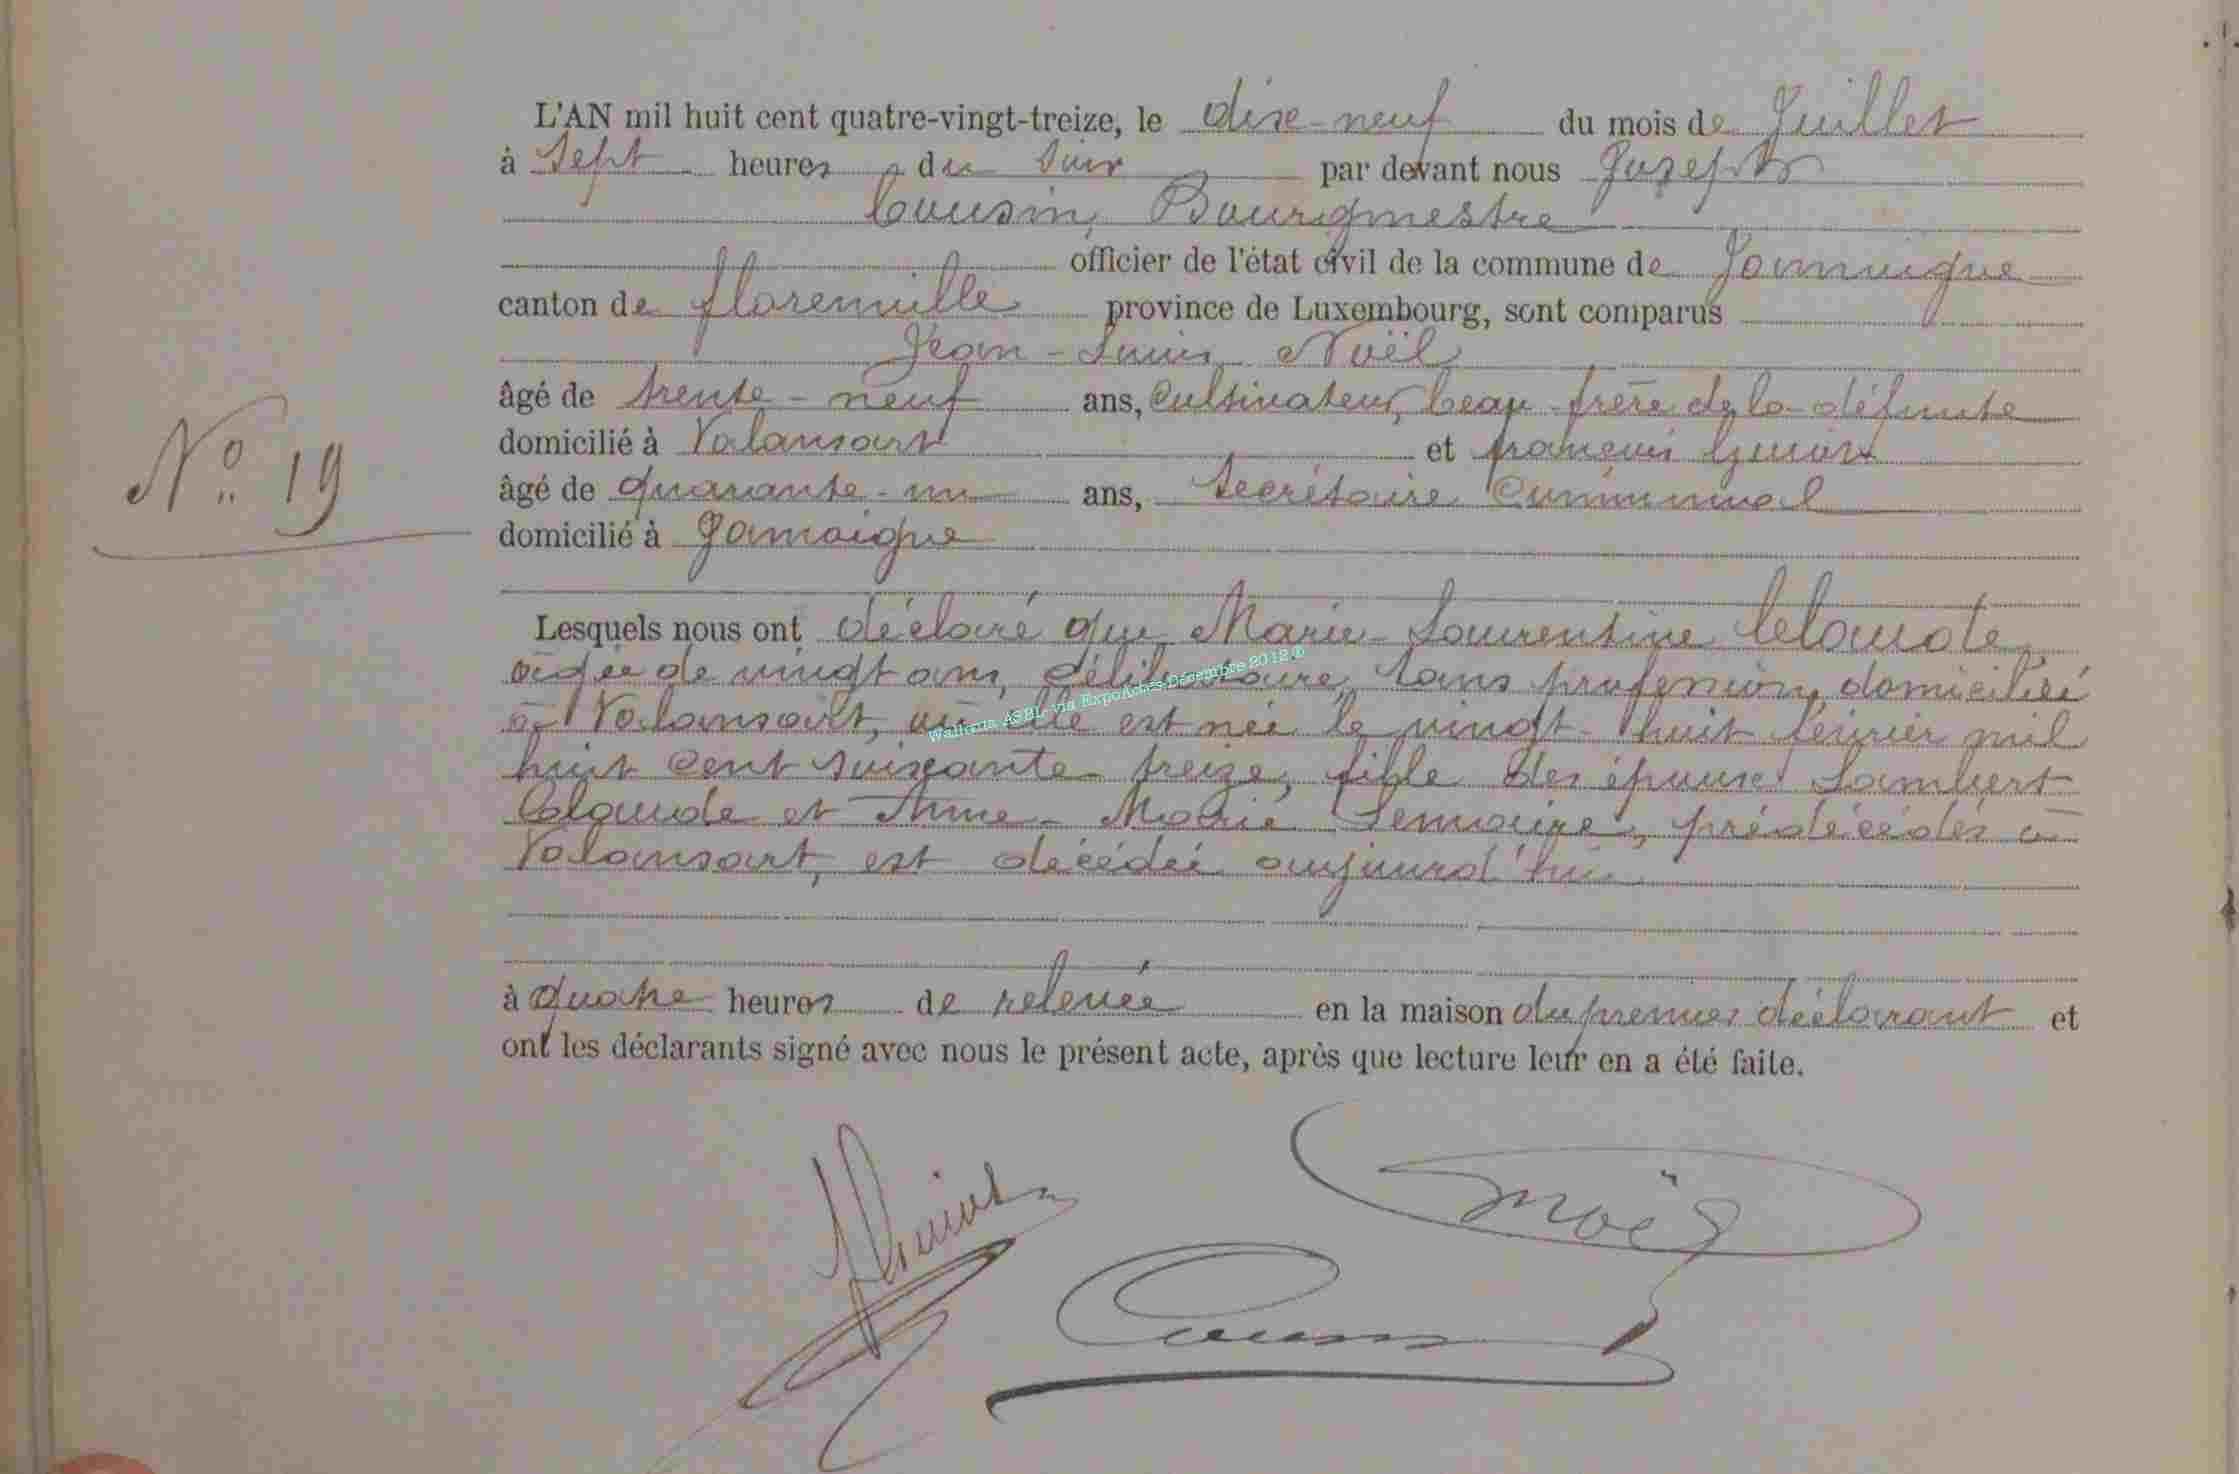 L'AN mil huit cent quatre-vingt-treize, le dixe-neuf du mois de Juillet
à sept heures du soir par devant nous Joseph
Cousin, Bourgmestre
officier de l'état civil de la commune de Jamoigne
canton de florenville province de Luxembourg, sont comparus
Jean-Louis Noël
âgé de trente-neuf ans, cultivateur, beau-frère de la défunte
domicilié à Valansart et françois
N° 19
âgé de quarante-un ans, Secrétaire Communal
domicilié à Jamoigne
Lesquels nous ont déclaré que Marie-Laurentine Claude
âgée de vingt ans, célibataire, sans profession, domiciliée
à Valansart, où elle est née le vingt-huit février mil
Wallonia ASBL via ExpoActes-Décembre 2012®
huit cent soixante-treize, fille des époux Lambert
Claude et Anne-Marie Lemaire, prédécédés à
Valansart, est décédée aujourd'hui
à quatre heures de relevée en la maison du premier déclarant et
ont les déclarants signé avec nous le présent acte, après que lecture leur en a été faite.
Noël
Cousin